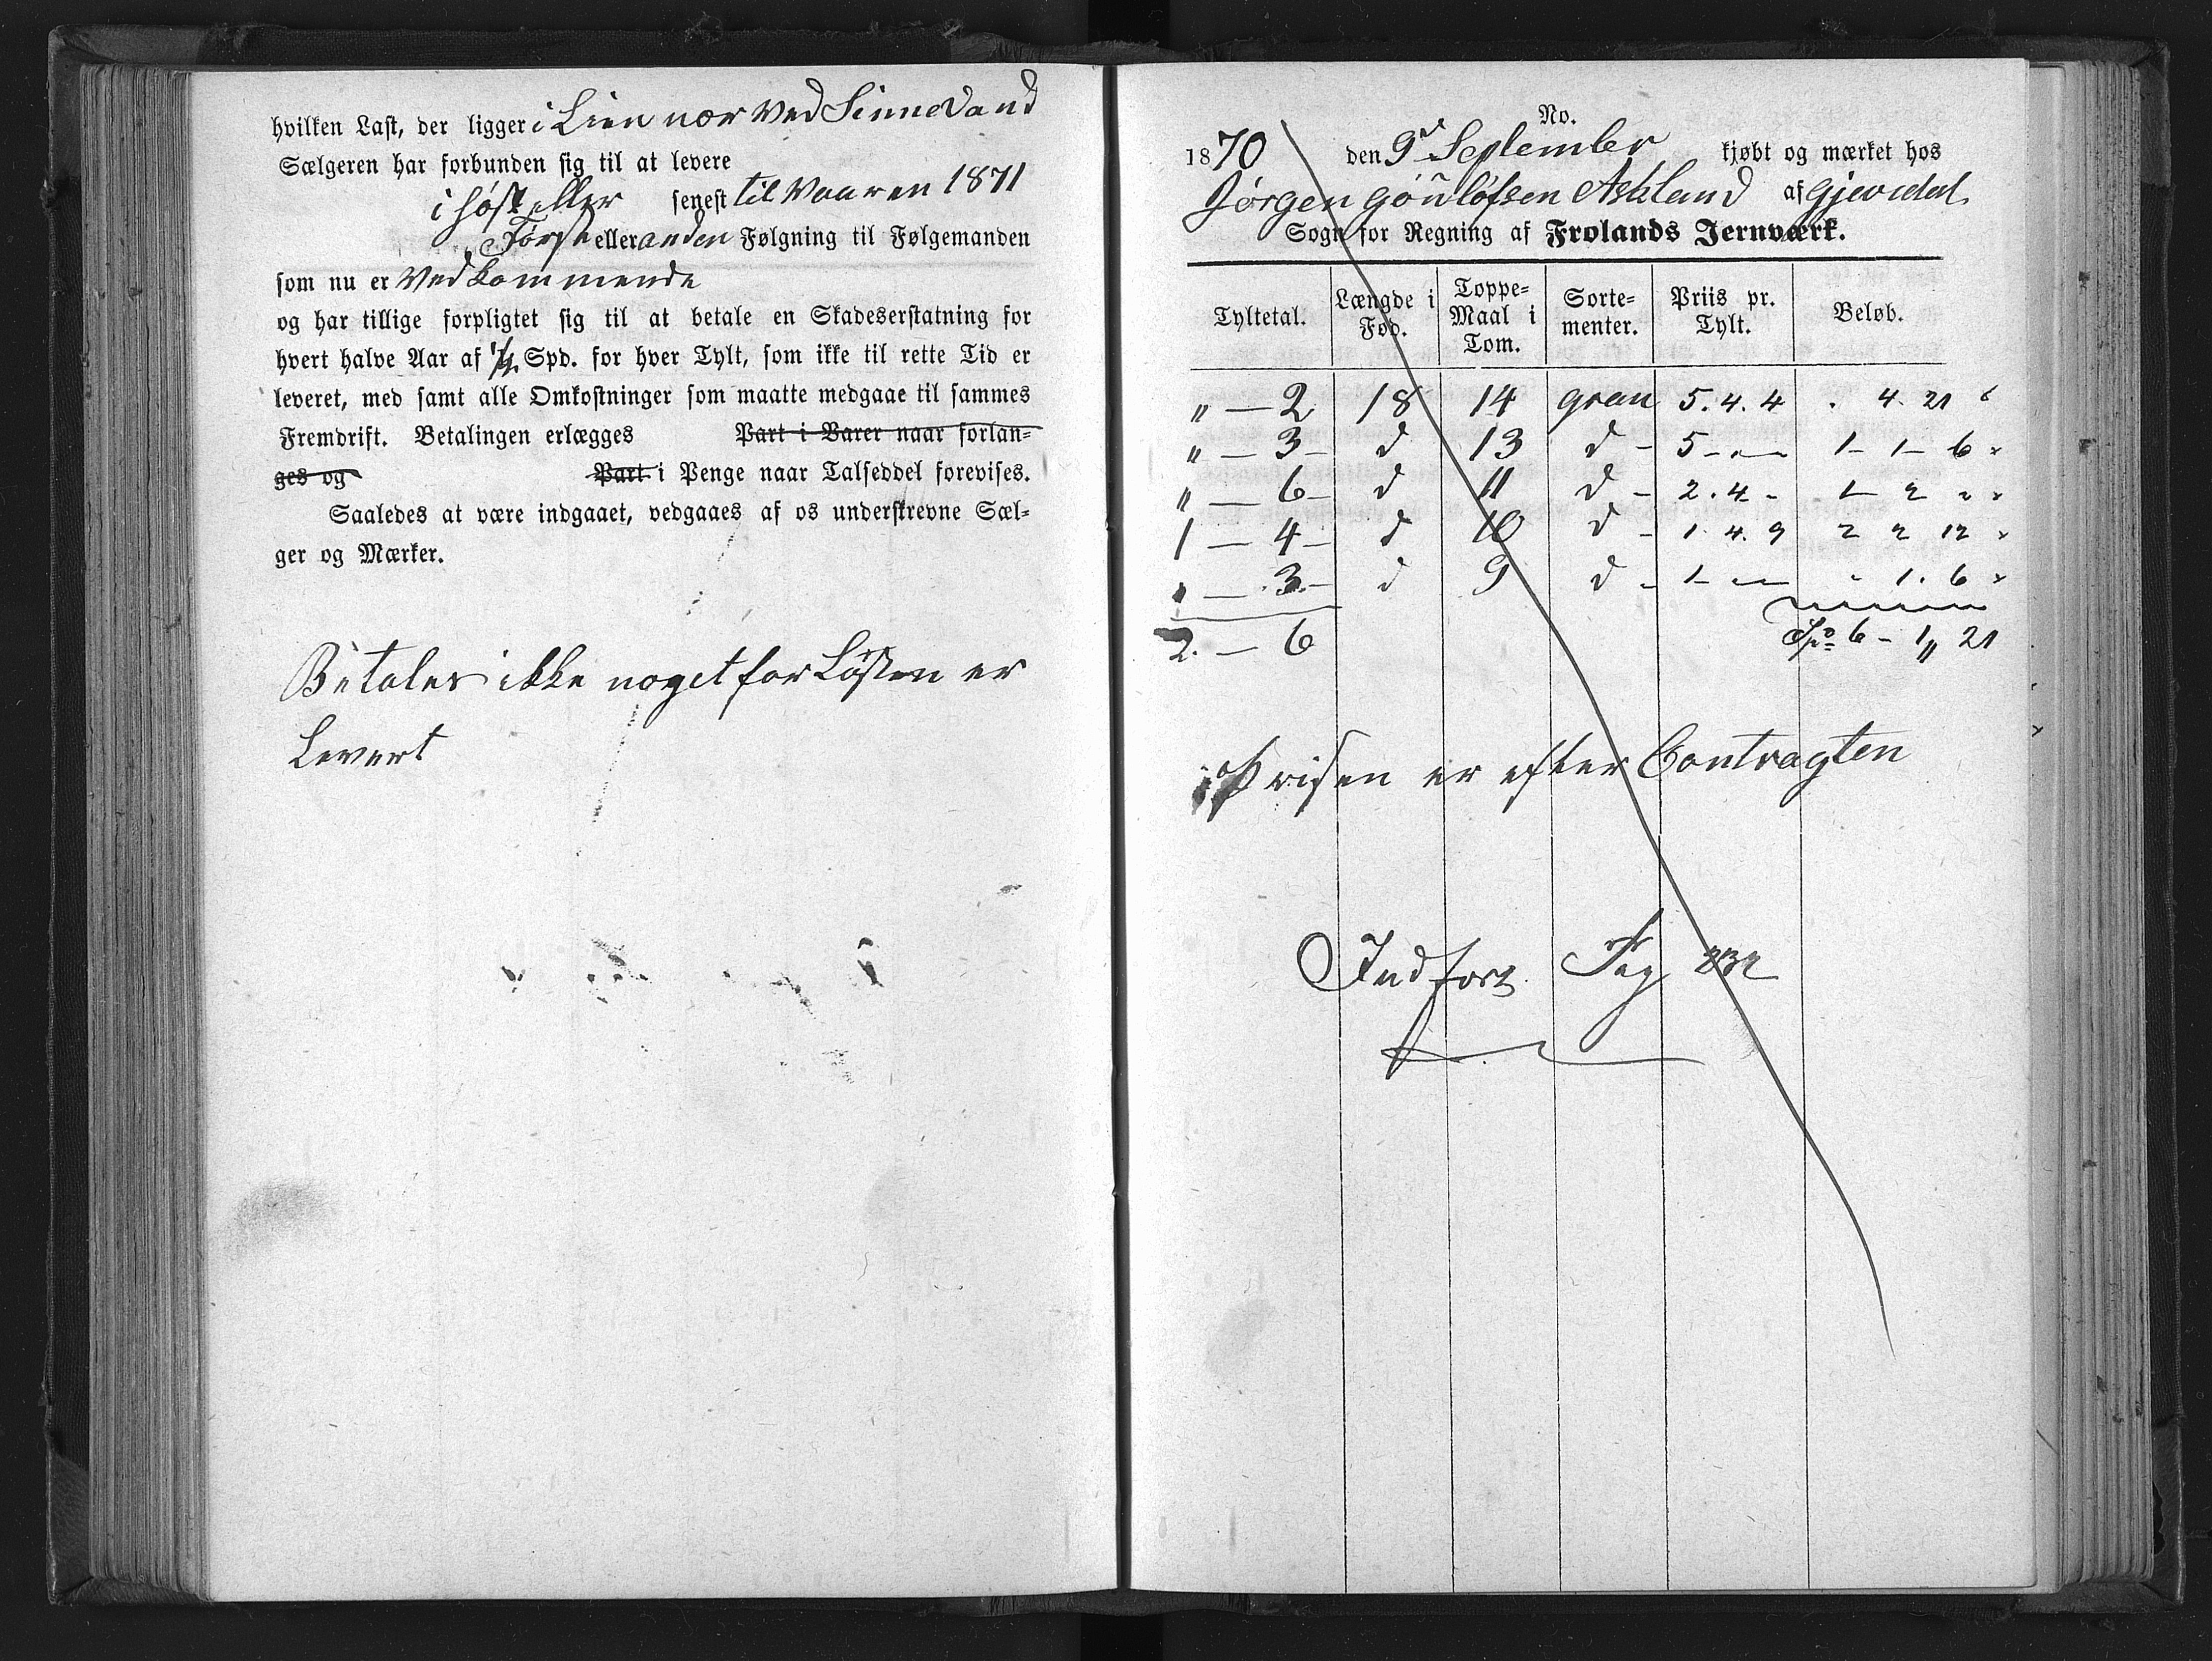 hvilken Last, der ligger i Lien nær ved Sinnevand
Sælgeren har forbunden sig til at levere
i høst eller senest til Vaaren 1871
Første eller anden Følgning til Følgemanden
som nu er Vedkommende
og har tillige forpligtet sig til at betale en Skadeserstatning for
hvert halve Aar af 1/2 Spd. for hver Tylt, som ikke til rette Tid er
leveret, med samt alle Omkostninger som maatte medgaae til sammes
Fremdrift. Betalingen erlægges Part i Varer naar forlan-
ges og Part i Penge naar Talseddel forevises.
Saaledes at være indgaaet, vedgaaes af os underskrevne Sæl-
ger og Mærker.
Betales ikke noget før Låsten er
Levert
No.
1870 den 9de September kjøbt og mærket hos
Jørgen Gøuløfsen Askland af Gjevedal
Sogn for Regning af Frolands Jernværk.
Tyltetal. Længde i Fod. Toppe-Maal i Tom. Sorte-menter. Priis pr. Tylt. Beløb.
" — 2 18 14 gran 5. 4. 4 . 4. 21
" — 3 d 13 d - 5 - - 1 - 1 - 6
" — 6 d 11 d - 2. 4 - 1 - 2 "
1 — 4 d 10 d - 1. 4. 9 2 2 12
" — 3 d 9 d - 1 - - " 1. 6
2 — 6 Spd 6 - 1 " 21
Prisen er efter Contragten
Indført Pag 232